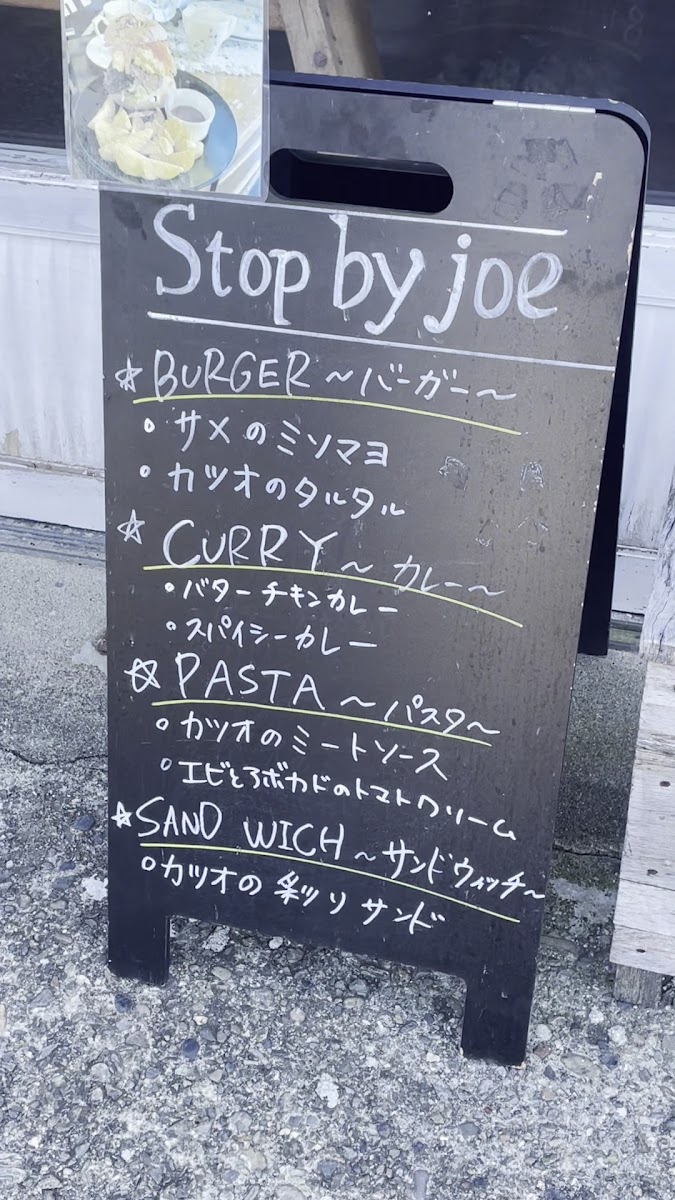 Stop by joe
☆ BURGER ~バーガー~
○ サメのミソマヨ
○ カツオのタルタル
☆ CURRY ~カレー~
○ バターチキンカレー
○ スパイシーカレー
☆ PASTA ~パスタ~
○ カツオのミートソース
○ エビとアボカドのトマトクリーム
☆ SAND WICH ~サンドウィッチ~
○ カツオの彩りサンド